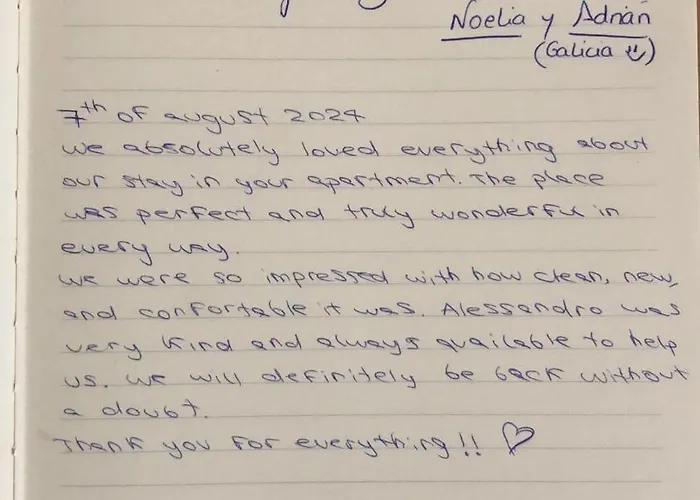 Noelia y Adrián
(Galicia

7th of august 2024
we absolutely loved everything about
our stay in your apartment. The place
was perfect and truly wonderful in
every way.
we were so impressed with how clean, new,
and confortable it was. Alessandro was
very kind and always available to help
us. we will definitely be back without
a doubt.
Thank you for everything!! ♡